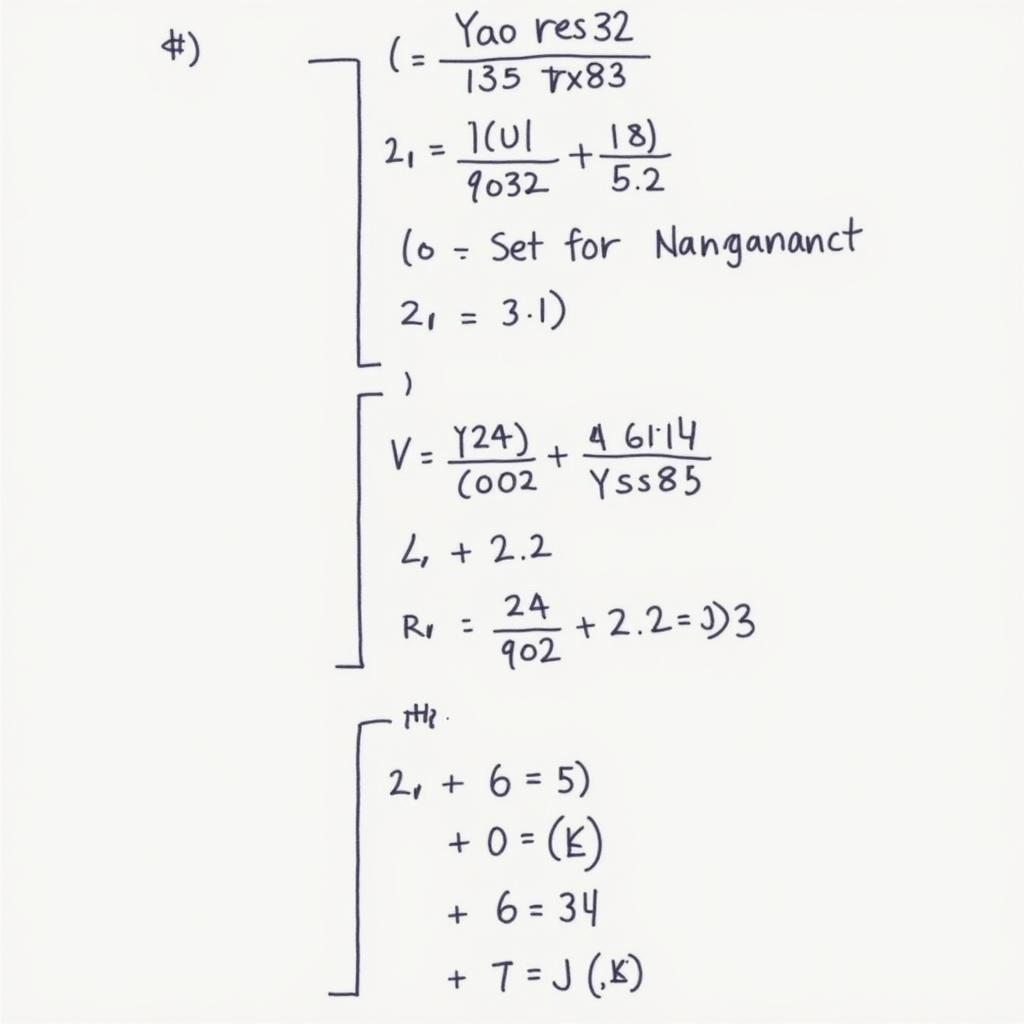 #)
( = Yao res32 / 135 Trx83
2₁ = 1(U1 / 9032 + 18) / 5.2
(o = Set for Nangananct
2₁ = 3.1)
)
V = Y24) / (002 + 4 61·14 / Yss85
L, + 2.2
R₁ = 24 / 902 + 2.2 = J)3
2₁ + 6 = 5)
+ 0 = (K)
+ 6 = 34
+ T = J (,K)